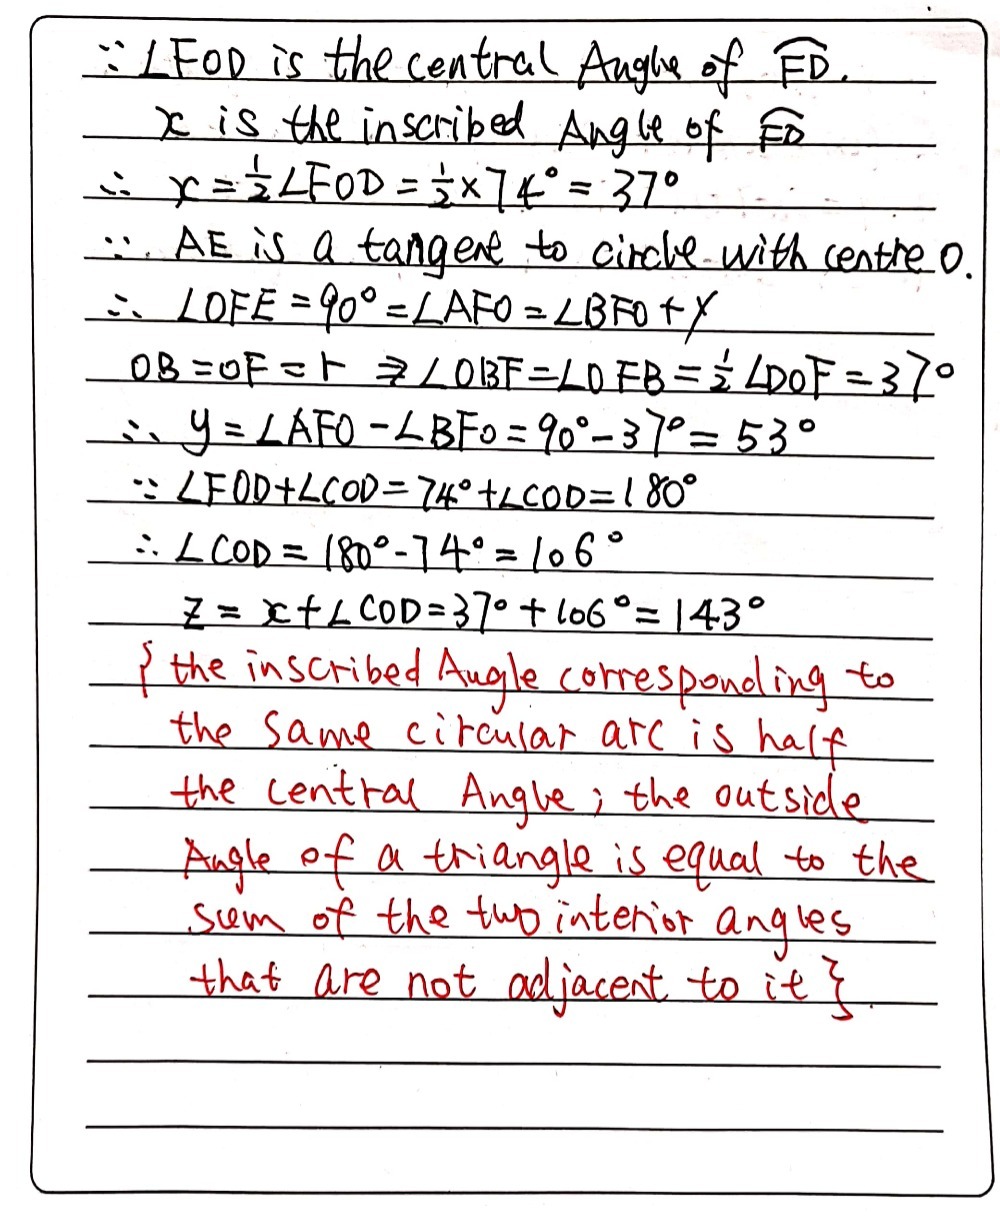 ∵ ∠FOD is the central Angle of F͡D.
x is the inscribed Angle of F͡D
∴ x = ½∠FOD = ½×74° = 37°
∵ AE is a tangent to circle with centre O.
∴ ∠OFE = 90° = ∠AFO = ∠BFO + y
OB = OF = r ⇒ ∠OBF = ∠OFB = ½ ∠DOF = 37°
∴ y = ∠AFO - ∠BFO = 90° - 37° = 53°
∵ ∠FOD + ∠COD = 74° + ∠COD = 180°
∴ ∠COD = 180° - 74° = 106°
z = x + ∠COD = 37° + 106° = 143°
{ the inscribed Angle corresponding to
the same circular arc is half
the central Angle ; the outside
Angle of a triangle is equal to the
sum of the two interior angles
that are not adjacent to it }